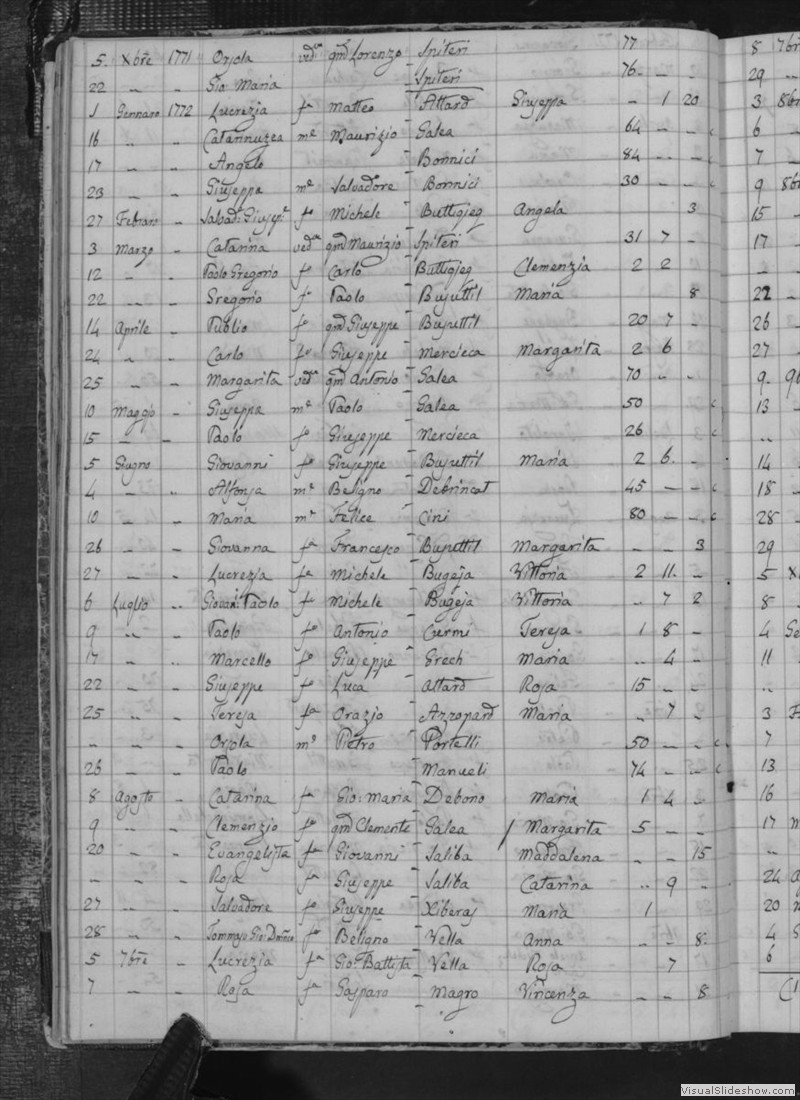 5. Xbre 1771 Orsola ved.a qm Lorenzo Spiteri 77
22 " " Gio Maria Spiteri 76 - -
1 Gennaro 1772 Lucrezia fa Matteo Attard Giuseppa - 1 20
16 " - Catarinuzza me Maurizio Galea 64 - - c
17 " - Angelo Bonnici 84 - - c
23 - - Giuseppa me Salvadore Bonnici 30 - - c
27 Febraro - fo Michele Buttigieg Angela 3
3 Marzo - Catarina ved.a qm Maurizio Spiteri 31 7 -
12 " - Paolo Gregorio fo Carlo Buttigieg Clemenzia 2 2
22 - - Gregorio fo Paolo Busuttil Maria 8
14 Aprile - Publio fo qm Giuseppe Busuttil 20 7 -
24 " - Carlo fo Giuseppe Mercieca Margarita 2 6
25 " - Margarita ved.a qm Antonio Galea 70 - -
10 Maggio - Giuseppa me Paolo Galea 50 c
15 - - Paolo fo Giuseppe Mercieca 26 c
5 Giugno Giovanni fo Giuseppe Busuttil Maria 2 6. -
4 - " Alfonsa me Beligno Debrincat 45 - - c
10 - - Maria me Felice Cini 80 - - c
26 - - Giovanna fa Francesco Busuttil Margarita - - 3
27 - - Lucrezia fa Michele Bugeja Vittoria 2 11. -
6 Luglio " Giovan: Paolo fo Michele Bugeja Vittoria " 7 2
9 " - Paolo fo Antonio Curmi Teresa 1 8 -
17 - " Marcello fo Giuseppe Grech Maria " 4 -
22 - - Giuseppe fo Luca Attard Rosa 15 - -
25 - - Teresa fa Orazio Azzopard Maria - 7 -
" " - Orsola me Pietro Portelli 50 - - c
26 - - Paolo Manueli 74 - - c
8 Agosto - Catarina fa Gio: Maria Debono Maria 1 4 -
9 " - Clemenzio fo qm Clemente Galea / Margarita 5 - -
20 - - Evangelista fa Giovanni Saliba Maddalena - - 15
- - - Rosa fa Giuseppe Saliba Catarina " 9 -
27 - - Salvadore fo Giuseppe Xiberas Maria 1
28 - - fo Beligno Vella Anna - - 8.
5 7bre - Lucrezia fa Gio: Battista Vella Rosa 7
7 - - Rosa fa Gasparo Magro Vincenza - - 8
8 7bre
29 -
3 8bre
6 -
7 -
9 8bre
15 -
17 -
- -
22 -
26 -
27 -
9.
13 -
"
14 -
18 -
28 -
29
5 X
8 -
4 Ge
11
"
3 F
7
13
16
17 M
"
24 A
20
4
6
VisualSlideshow.com